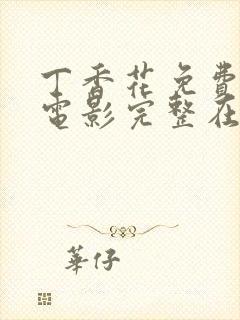 丁香花免費
電影完整在
華仔